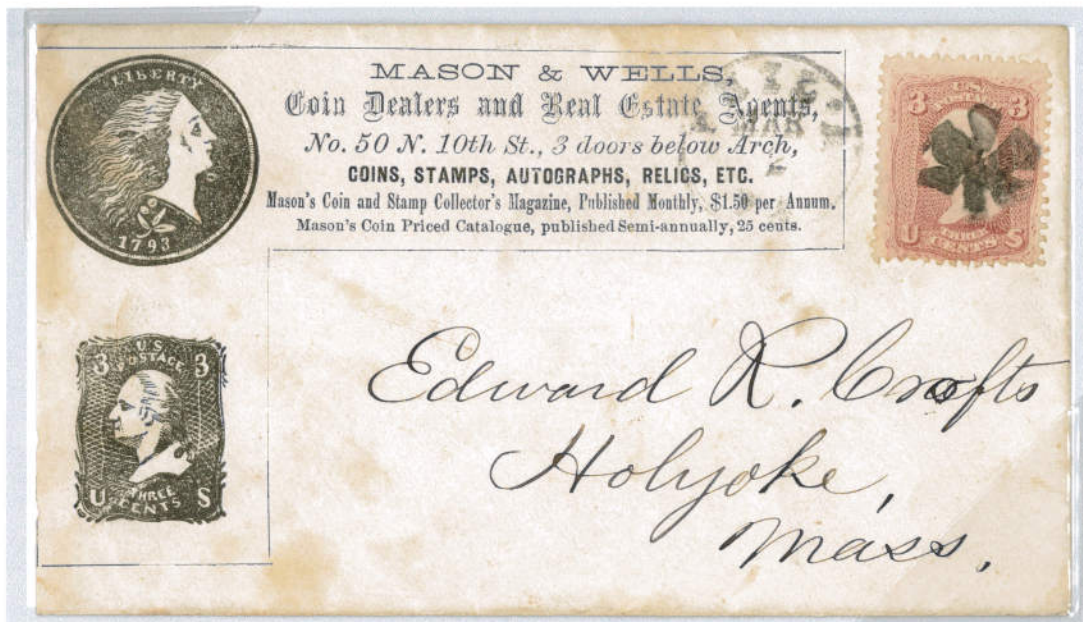 LIBERTY
1793
MASON & WELLS,
Coin Dealers and Real Estate Agents,
No. 50 N. 10th St., 3 doors below Arch,
COINS, STAMPS, AUTOGRAPHS, RELICS, ETC.
Mason's Coin and Stamp Collector's Magazine, Published Monthly, $1.50 per Annum.
Mason's Coin Priced Catalogue, published Semi-annually, 25 cents.
MAR
3 3
U CENTS S
U.S.
3 POSTAGE 3
THREE
U CENTS S
Edward R. Crofts
Holyoke,
Mass.